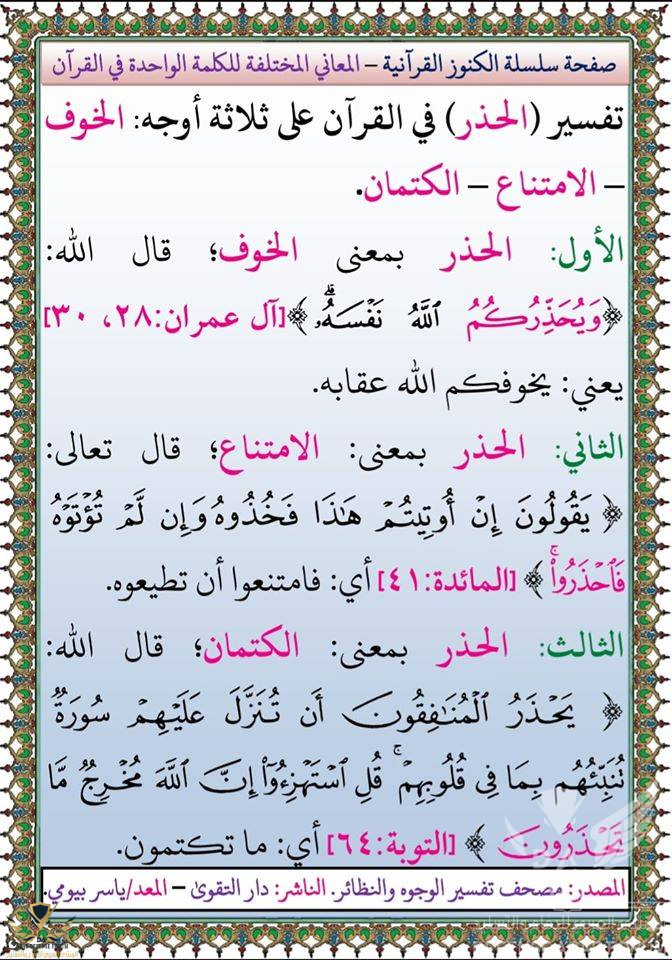 صفحة سلسلة الكنوز القرآنية – المعاني المختلفة للكلمة الواحدة في القرآن
تفسير (الحذر) في القرآن على ثلاثة أوجه: الخوف
– الامتناع – الكتمان.
الأول: الحذر بمعنى الخوف؛ قال الله:
﴿وَيُحَذِّرُكُمُ ٱللَّهُ نَفْسَهُۥۗ﴾[آل عمران:٢٨، ٣٠]
يعني: يخوفكم الله عقابه.
الثاني: الحذر بمعنى: الامتناع؛ قال تعالى:
﴿ يَقُولُونَ إِنْ أُوتِيتُمْ هَٰذَا فَخُذُوهُ وَإِن لَّمْ تُؤْتَوْهُ
فَٱحْذَرُوا۟ۚ ﴾ [المائدة:٤١] أي: فامتنعوا أن تطيعوه.
الثالث: الحذر بمعنى: الكتمان؛ قال الله:
﴿ يَحْذَرُ ٱلْمُنَٰفِقُونَ أَن تُنَزَّلَ عَلَيْهِمْ سُورَةٌ
تُنَبِّئُهُم بِمَا فِى قُلُوبِهِمْۚ قُلِ ٱسْتَهْزِءُوٓا۟ إِنَّ ٱللَّهَ مُخْرِجٌ مَّا
تَحْذَرُونَ ﴾ [التوبة:٦٤] أي: ما تكتمون.
المصدر: مصحف تفسير الوجوه والنظائر. الناشر: دار التقوىٰ – المعد/ياسر بيومي.